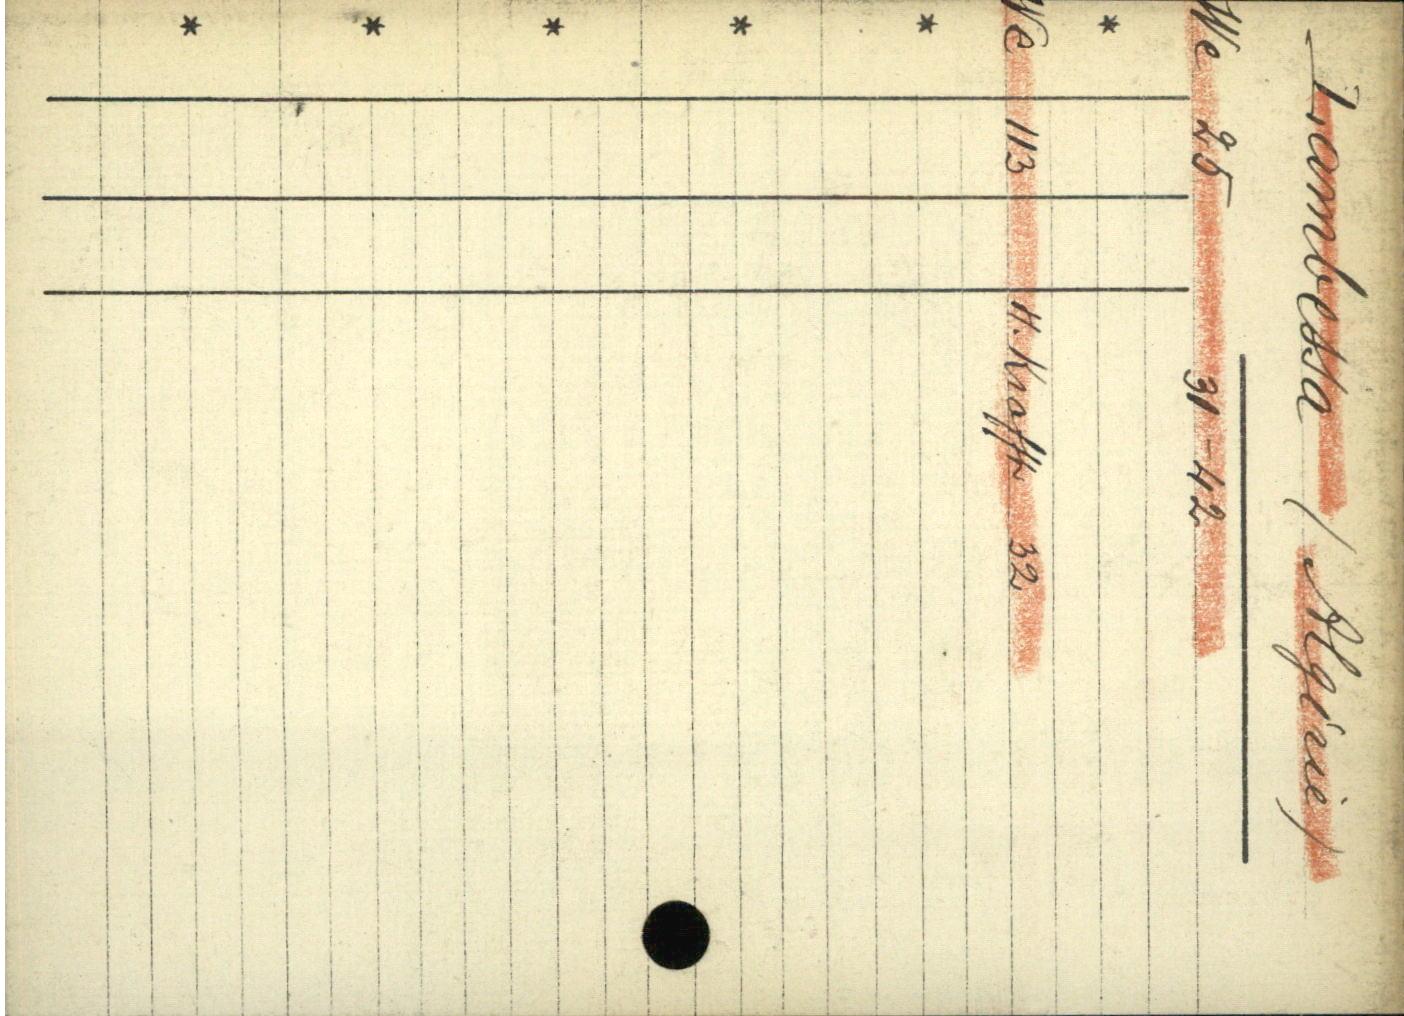 Lambessa (Algérie)
We 25 31-42
*
We 113 H. Krafft 32
*
*
*
*
*